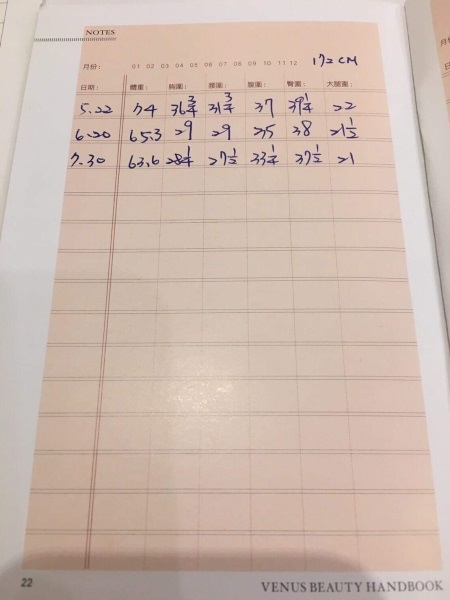 NOTES
月份： 01 02 03 04 05 06 07 08 09 10 11 12 172 CM
日期： 體重： 胸圍： 腰圍： 腹圍： 臀圍： 大腿圍：
5.22 74 36 3/4 31 3/4 37 39 1/4 22
6.20 65.3 29 29 35 38 21 1/2
7.30 63.6 28 1/4 27 1/2 33 1/4 37 1/2 21
22 VENUS BEAUTY HANDBOOK